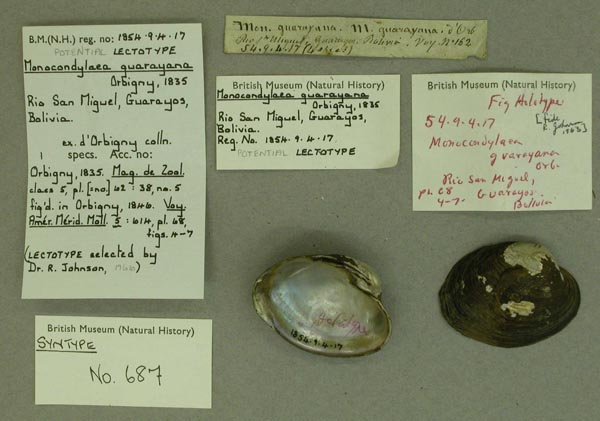 B.M.(N.H.) reg. no: 1854·9·4·17
POTENTIAL LECTOTYPE
Monocondylaea guarayana
Orbigny, 1835
Rio San Miguel, Guarayos,
Bolivia.
ex. d'Orbigny colln.
1 specs. Acc. no:
Orbigny, 1835. Mag. de Zool.
class 5, pl. [sno] 62 : 38, no. 5
fig'd. in Orbigny, 1846. Voy.
Amér. Mérid. Moll. 5 : 614, pl. 68,
figs. 4-7
(LECTOTYPE selected by
Dr. R. Johnson, )
British Museum (Natural History)
SYNTYPE
No. 687
Mon. guarayana. M. guarayana. d'Orb
Rio Sn Miguel, Guarayos. Bolivia. Voy. No 162
54.9.4.17
British Museum (Natural History)
Monocondylaea guarayana
Orbigny, 1835
Rio San Miguel, Guarayos,
Bolivia.
Reg. No. 1854.9.4.17
POTENTIAL LECTOTYPE
British Museum (Natural History)
Fig Holotype
[fide
R. Johnson
54.9.4.17
Monocondylaea
guarayana
Orb.
Rio San Miguel,
pl. 68 Guarayos.
4-7. Bolivia
Holotype
1854·9·4·17